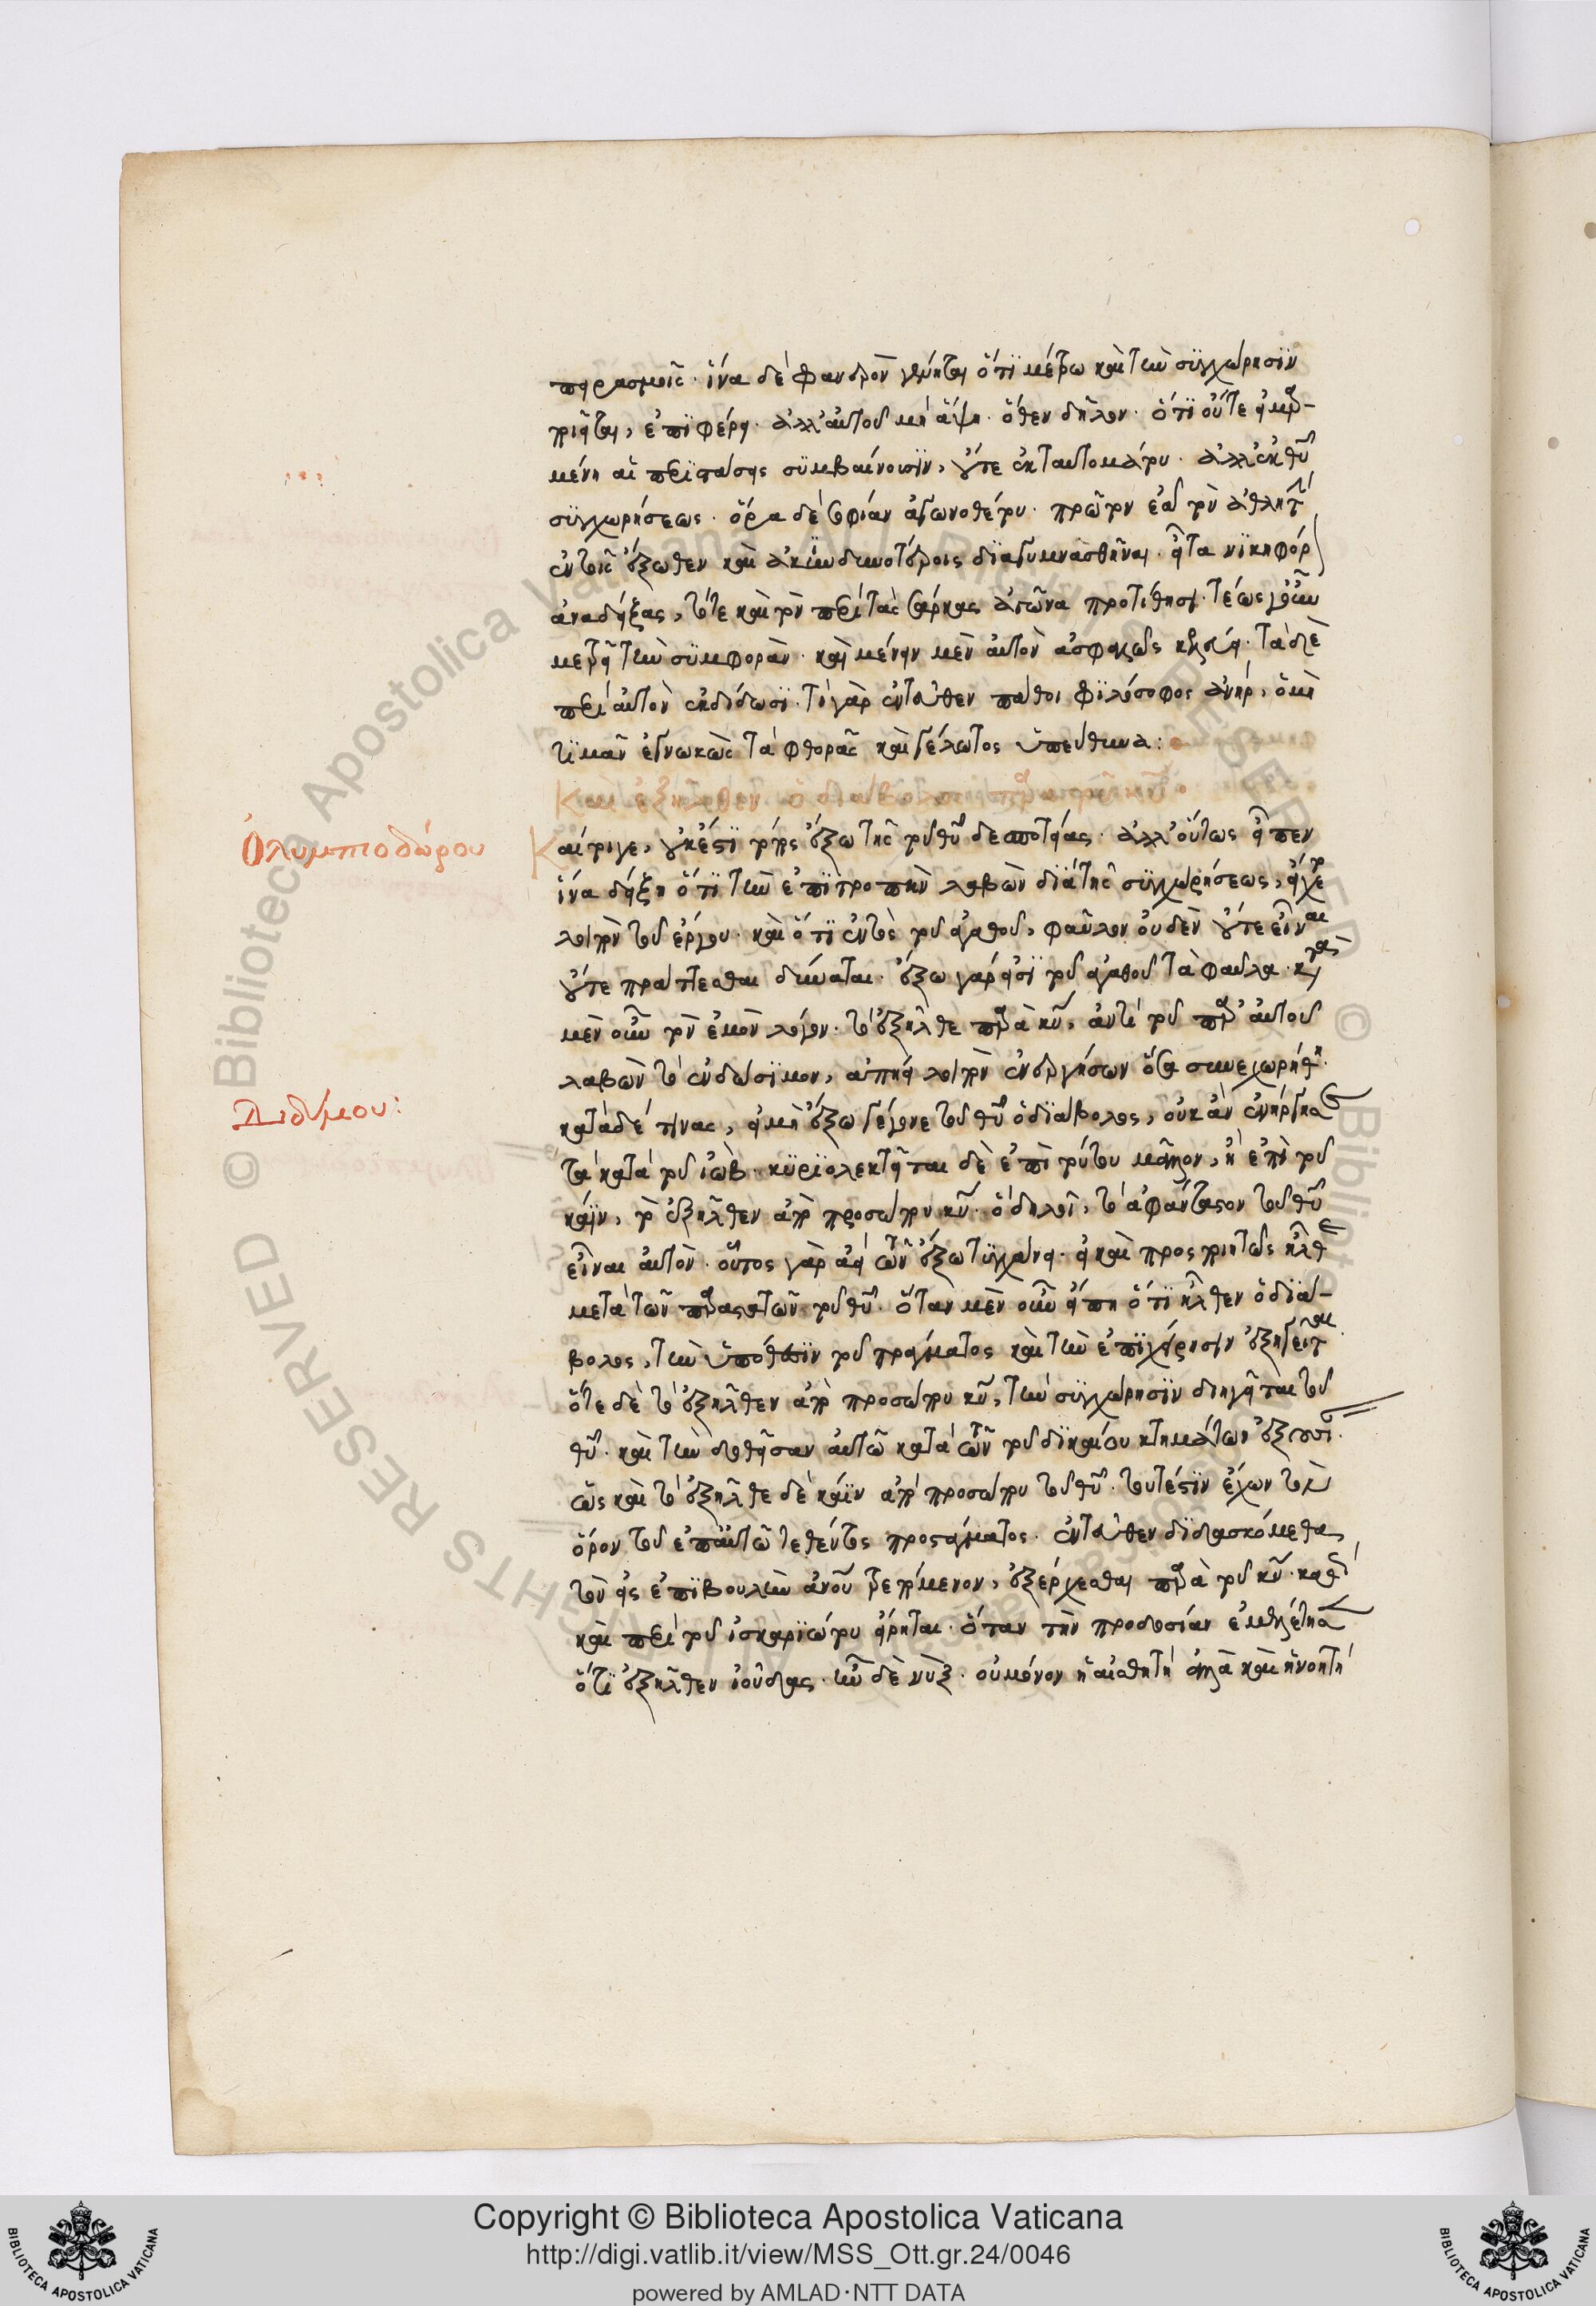 πειρασμοῖς. ἵνα δὲ φανερὸν γένηται ὅτι μέτρω καὶ τὴν συγχώρησιν
ποιεῖται, ἐπιφέρει. ἀλλ' αὐτοῦ μὴ ἅψη. ὅθεν δῆλον. ὅτι οὔτε εἱμαρ-
μένη αἱ περιστάσεις συμβαίνουσιν, οὔτε ἐκ ταυτομάτου. ἀλλ' ἐκ θυ
συγχωρήσεως. ὅρα δὲ σοφίαν ἀγωνοθέτου. πρῶτον ἐᾶ τὸν ἀθλητ
ἐν τοῖς ἔξωθεν καὶ ἀκινδυνοτέροις διαγυμνασθῆναι. εἶτα νικηφόρ
ἀναδείξας, τότε καὶ τὸν περὶ τὰς σάρκας ἀγῶνα προτίθησι. τέως γοῦν
μετρεῖ τὴν συμφοράν. καὶ μένειν μὲν αὐτὸν ἀσφαλῶς κελεύει. τὰ δὲ
περὶ αὐτὸν ἐκδίδωσι. τί γὰρ ἐντεῦθεν πάθοι φιλόσοφος ἀνήρ, ὁ μὴ
τιμᾶν ἐγνωκὼς τὰ φθορᾶς καὶ γέλωτος ὑπεύθυνα:
Καὶ ἐξῆλθεν ὁ διάβολος παρὰ τοῦ κυ
Ὀλυμπιοδώρου
Καίτοιγε, οὐκ ἔστι τόπος ἔξω τῆς τοῦ θυ δεσποτείας. ἀλλ' οὕτως εἶπεν
ἵνα δείξη ὅτι τὴν ἐπιτροπὴν λαβὼν διὰ τῆς συγχωρήσεως, εἴχετο
λοιπὸν τοῦ ἔργου. καὶ ὅτι ἐντὸς τοῦ ἀγαθοῦ, φαῦλον οὐδὲν οὔτε εἶναι
οὔτε πράττεσθαι δύναται. ἔξω γάρ εἰσι τοῦ ἀγαθοῦ τὰ φαῦλα. κατὰ
μὲν οὖν τὸν ἐμὸν λόγον. τὸ ἐξῆλθε παρὰ κυ, ἀντὶ τοῦ παρ' αὐτοῦ
λαβὼν τὸ ἐνδόσιμον, ἀπῄει λοιπὸν ἐνεργήσων ὅσα συνεχωρήθη.
Διδύμου:
κατὰ δέ τινας, εἰ μὴ ἔξω γέγονε τοῦ θυ ὁ διάβολος, οὐκ ἂν ἐνήργησε
τὰ κατὰ τοῦ ἰώβ. κυριολεκτεῖται δὲ ἐπὶ τούτου μᾶλλον, ἢ ἐπὶ τοῦ
κάϊν, τὸ ἐξῆλθεν ἀπὸ προσώπου κυ. ὃ δηλοῖ, τὸ ἀφάνταστον τοῦ θυ
εἶναι αὐτόν. οὗτος γὰρ ἀεὶ ὢν ἔξω τυγχάνει. εἰ καὶ προσποιητῶς ἦλθε
μετὰ τῶν παραστατῶν τοῦ θυ. ὅταν μὲν οὖν εἴπη ὅτι ἦλθεν ὁ διάβ-
βολος, τὴν ὑπόθεσιν τοῦ πράγματος καὶ τὴν ἐπιχείρησιν ἐξηγεῖται.
ὅτε δὲ τὸ ἐξῆλθεν ἀπὸ προσώπου κυ, τὴν συγχώρησιν διηγεῖται τοῦ
θυ. καὶ τὴν δοθεῖσαν αὐτῶ κατὰ τῶν τοῦ δικαίου κτημάτων ἐξουσί.
ὡς καὶ τὸ ἐξῆλθε δὲ κάϊν ἀπὸ προσώπου τοῦ θυ. τουτέστιν ἔχων τὸν
ὅρον τοῦ ἐπ' αὐτῶ τεθέντος προστάγματος. ἐντεῦθεν διδασκόμεθα,
τὸν εἰς ἐπιβουλὴν ανου τρεπόμενον, ἐξέρχεσθαι παρὰ τοῦ κυ. καθὸ
καὶ περὶ τοῦ ἰσκαριώτου εἴρηται. ὅταν τὴν προδοσίαν ἐμελέτησε
ὅτι ἐξῆλθεν ἰούδας. ἦν δὲ νύξ. οὐ μόνον ἡ αἰσθητὴ ἀλλὰ καὶ ἡ νοητὴ
Copyright © Biblioteca Apostolica Vaticana
http://digi.vatlib.it/view/MSS_Ott.gr.24/0046
powered by AMLAD·NTT DATA